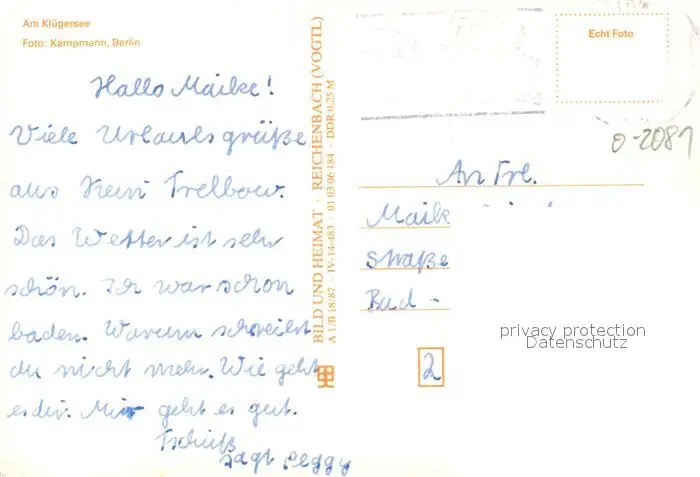 Am Klügersee
Foto: Kampmann, Berlin
Hallo Maike!
Viele Urlaubsgrüße
aus Klein Trebbow.
Das Wetter ist sehr
schön. Ich war schon
baden. Warum schreibst
du nicht mehr. Wie geht
es dir. Mir geht es gut.
Tschüß
sagt Peggy
BILD UND HEIMAT · REICHENBACH (VOGTL)
A 1/B 18/87 · IV-14-483 · 01 03 06 184 · DDR 0,25 M
Echt Foto
0-2081
An Frl.
Maik
Straße
Bad -
2
privacy protection
Datenschutz